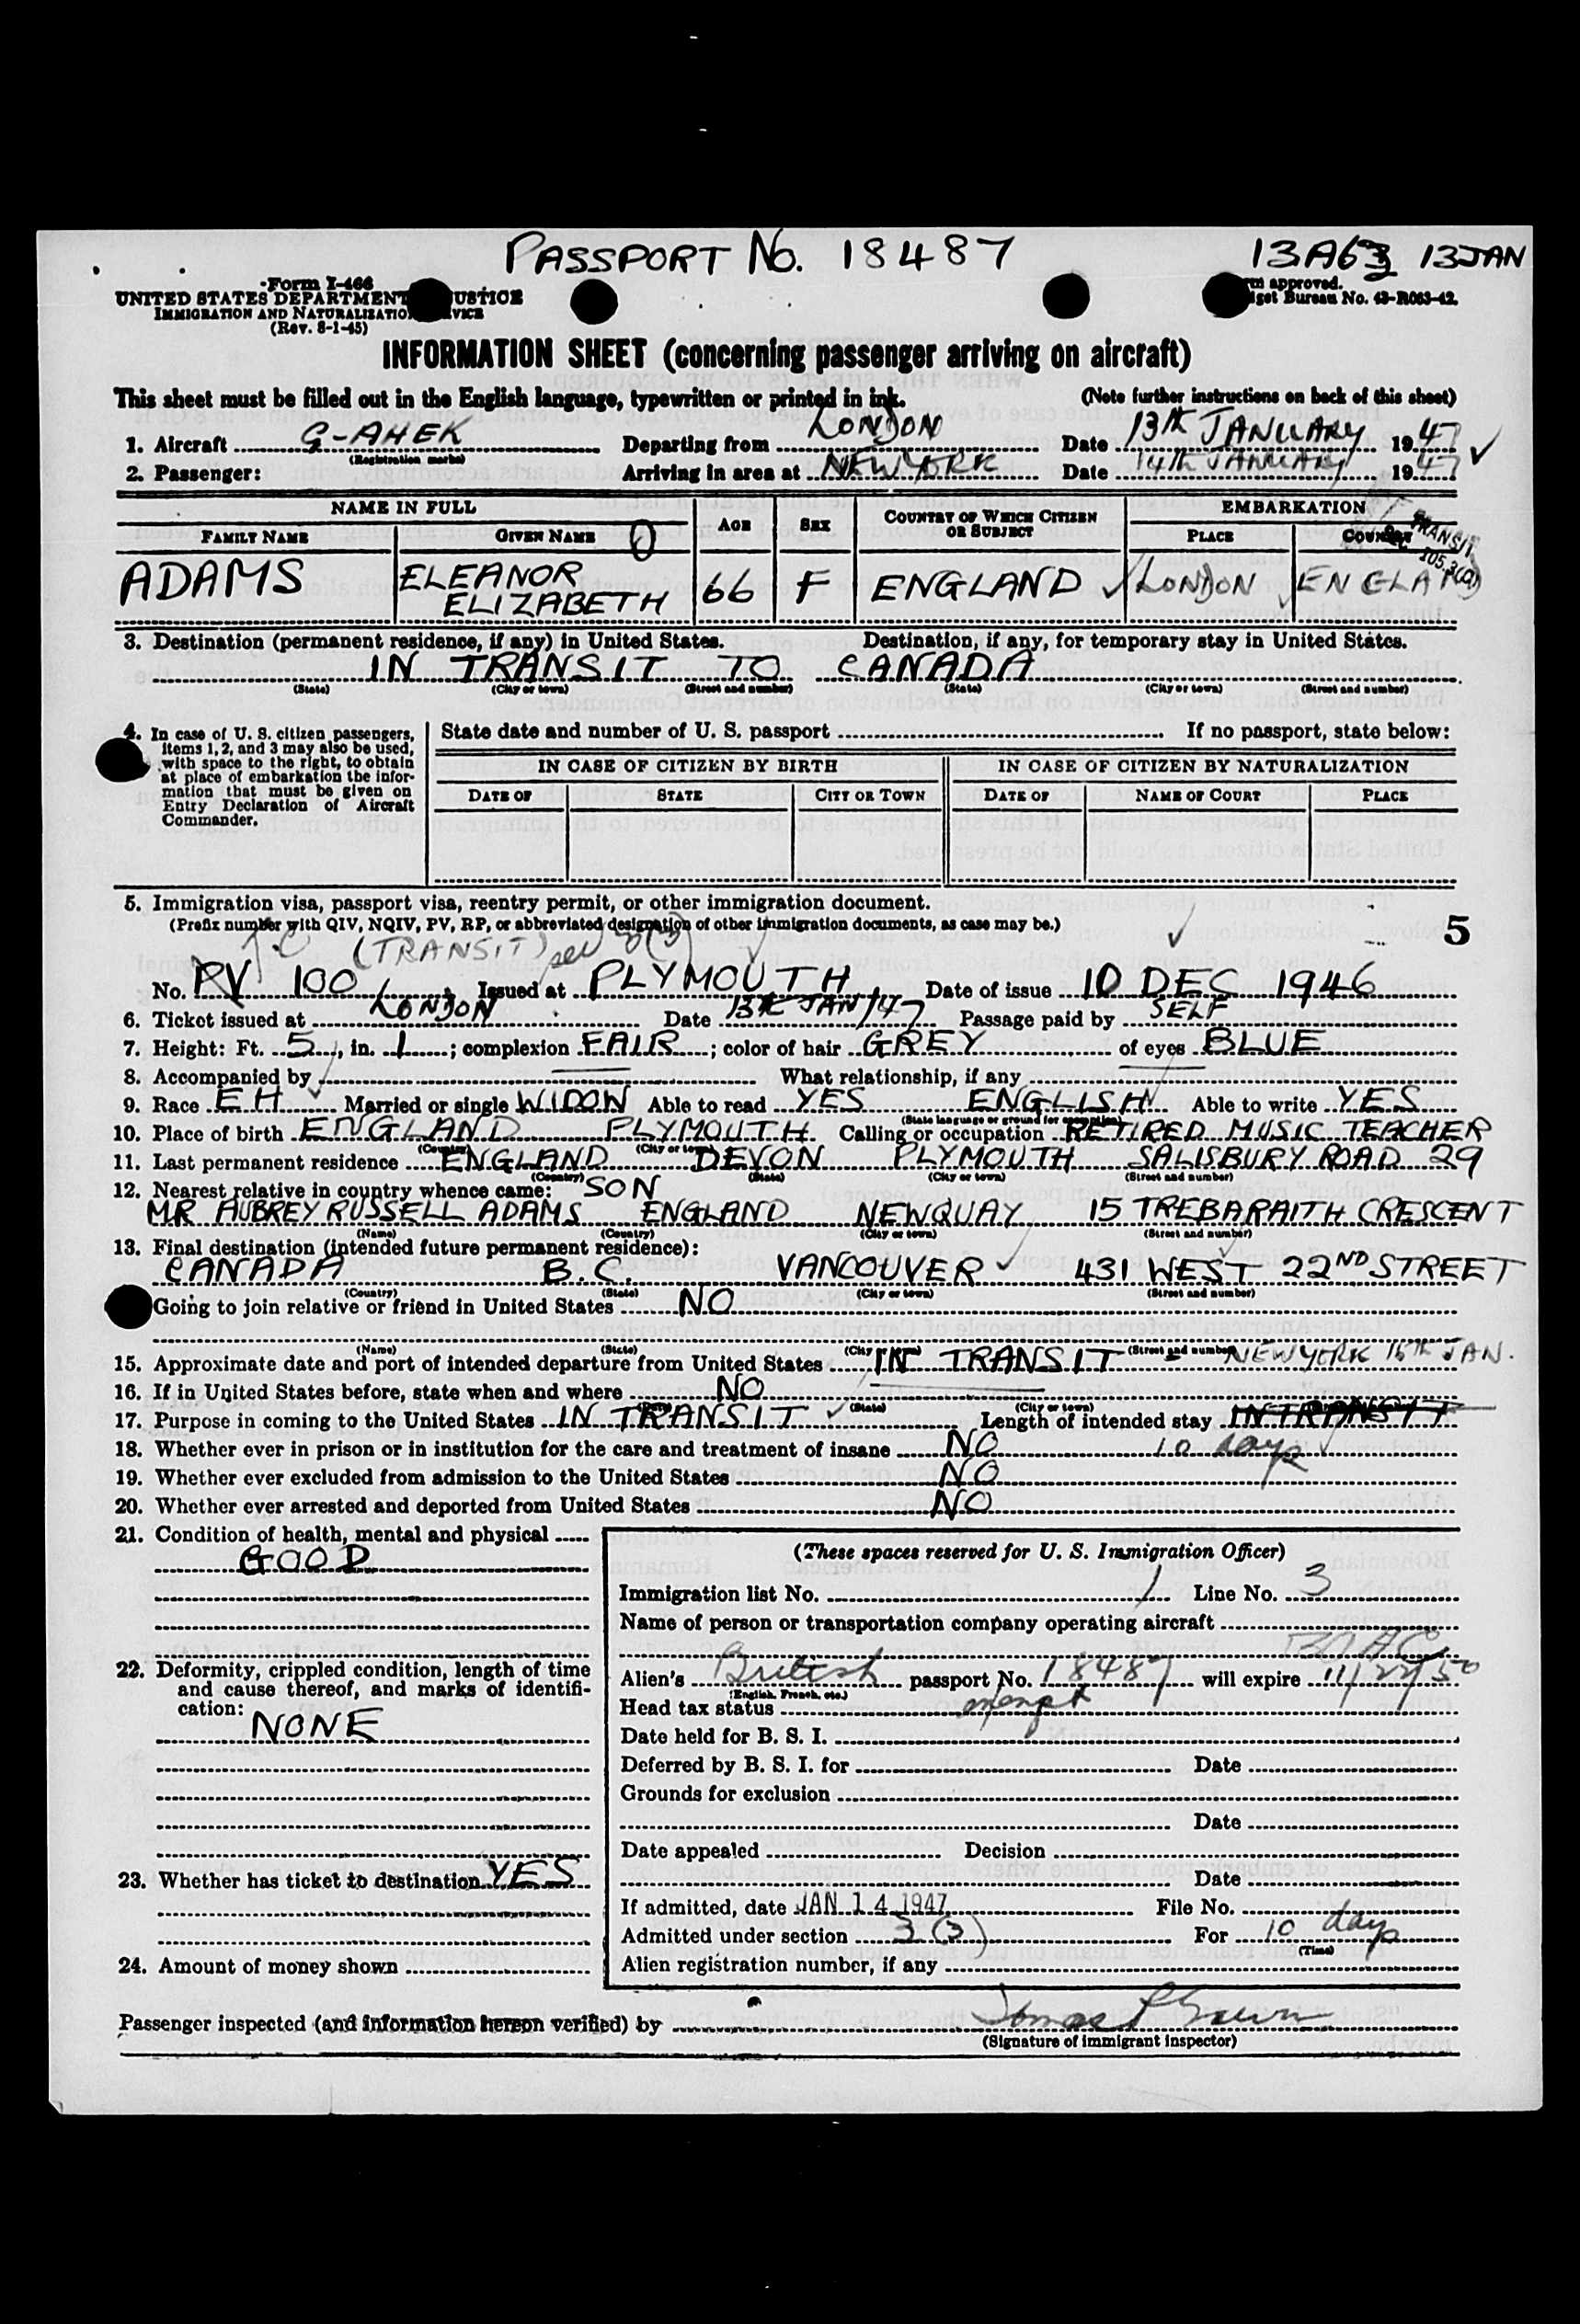 PASSPORT No. 18487 13A63 13JAN
Form I-466
UNITED STATES DEPARTMENT JUSTICE
IMMIGRATION AND NATURALIZATION SERVICE
(Rev. 8-1-45)
approved.
Budget Bureau No. 43-R063-42.
INFORMATION SHEET (concerning passenger arriving on aircraft)
This sheet must be filled out in the English language, typewritten or printed in ink. (Note further instructions on back of this sheet)
1. Aircraft G-AHEK Departing from LONDON Date 13th JANUARY 1947
(Registration marks)
2. Passenger: Arriving in area at NEW YORK Date 14th JANUARY 1947
NAME IN FULL AGE SEX COUNTRY OF WHICH CITIZEN OR SUBJECT EMBARKATION
FAMILY NAME GIVEN NAME PLACE COUNTRY
TRANSIT
105.3(a)
ADAMS ELEANOR ELIZABETH 66 F ENGLAND LONDON ENGLAND
3. Destination (permanent residence, if any) in United States. Destination, if any, for temporary stay in United States.
IN TRANSIT TO CANADA
(State) (City or town) (Street and number) (State) (City or town) (Street and number)
4. In case of U. S. citizen passengers, items 1, 2, and 3 may also be used, with space to the right, to obtain at place of embarkation the information that must be given on Entry Declaration of Aircraft Commander.
State date and number of U. S. passport If no passport, state below:
IN CASE OF CITIZEN BY BIRTH IN CASE OF CITIZEN BY NATURALIZATION
DATE OF STATE CITY OR TOWN DATE OF NAME OF COURT PLACE
5. Immigration visa, passport visa, reentry permit, or other immigration document.
(Prefix number with QIV, NQIV, PV, RP, or abbreviated designation of other immigration documents, as case may be.) 5
(TRANSIT) sec 3(3)
No. PV 100 Issued at PLYMOUTH Date of issue 10 DEC 1946
6. Ticket issued at LONDON Date 13th JAN/47 Passage paid by SELF
7. Height: Ft. 5, in. 1; complexion FAIR; color of hair GREY of eyes BLUE
8. Accompanied by What relationship, if any
9. Race EH Married or single WIDOW Able to read YES ENGLISH Able to write YES
(State language or ground for exemption)
10. Place of birth ENGLAND PLYMOUTH Calling or occupation RETIRED MUSIC TEACHER
(Country) (City or town)
11. Last permanent residence ENGLAND DEVON PLYMOUTH SALISBURY ROAD 29
(Country) (State) (City or town) (Street and number)
12. Nearest relative in country whence came: SON
MR AUBREY RUSSELL ADAMS ENGLAND NEWQUAY 15 TREBARAITH CRESCENT
(Name) (Country) (City or town) (Street and number)
13. Final destination (intended future permanent residence):
CANADA B.C. VANCOUVER 431 WEST 22ND STREET
(Country) (State) (City or town) (Street and number)
Going to join relative or friend in United States NO
(Name) (State) (City or town) (Street and number)
15. Approximate date and port of intended departure from United States IN TRANSIT - NEW YORK 15th JAN.
16. If in United States before, state when and where NO
(State) (City or town)
17. Purpose in coming to the United States IN TRANSIT Length of intended stay IN TRANSIT
18. Whether ever in prison or in institution for the care and treatment of insane NO 10 days
19. Whether ever excluded from admission to the United States NO
20. Whether ever arrested and deported from United States NO
21. Condition of health, mental and physical
GOOD
(These spaces reserved for U. S. Immigration Officer)
Immigration list No. 1 Line No. 3
Name of person or transportation company operating aircraft
BOAC
22. Deformity, crippled condition, length of time and cause thereof, and marks of identification:
NONE
Alien's British passport No. 18487 will expire 11/22/50
(English, French, etc.)
Head tax status exempt
Date held for B. S. I.
Deferred by B. S. I. for Date
Grounds for exclusion
Date
Date appealed Decision
23. Whether has ticket to destination YES
Date
If admitted, date JAN 14 1947 File No.
Admitted under section 3(3) For 10 days
(Time)
24. Amount of money shown
Alien registration number, if any
Passenger inspected (and information hereon verified) by
(Signature of immigrant inspector)